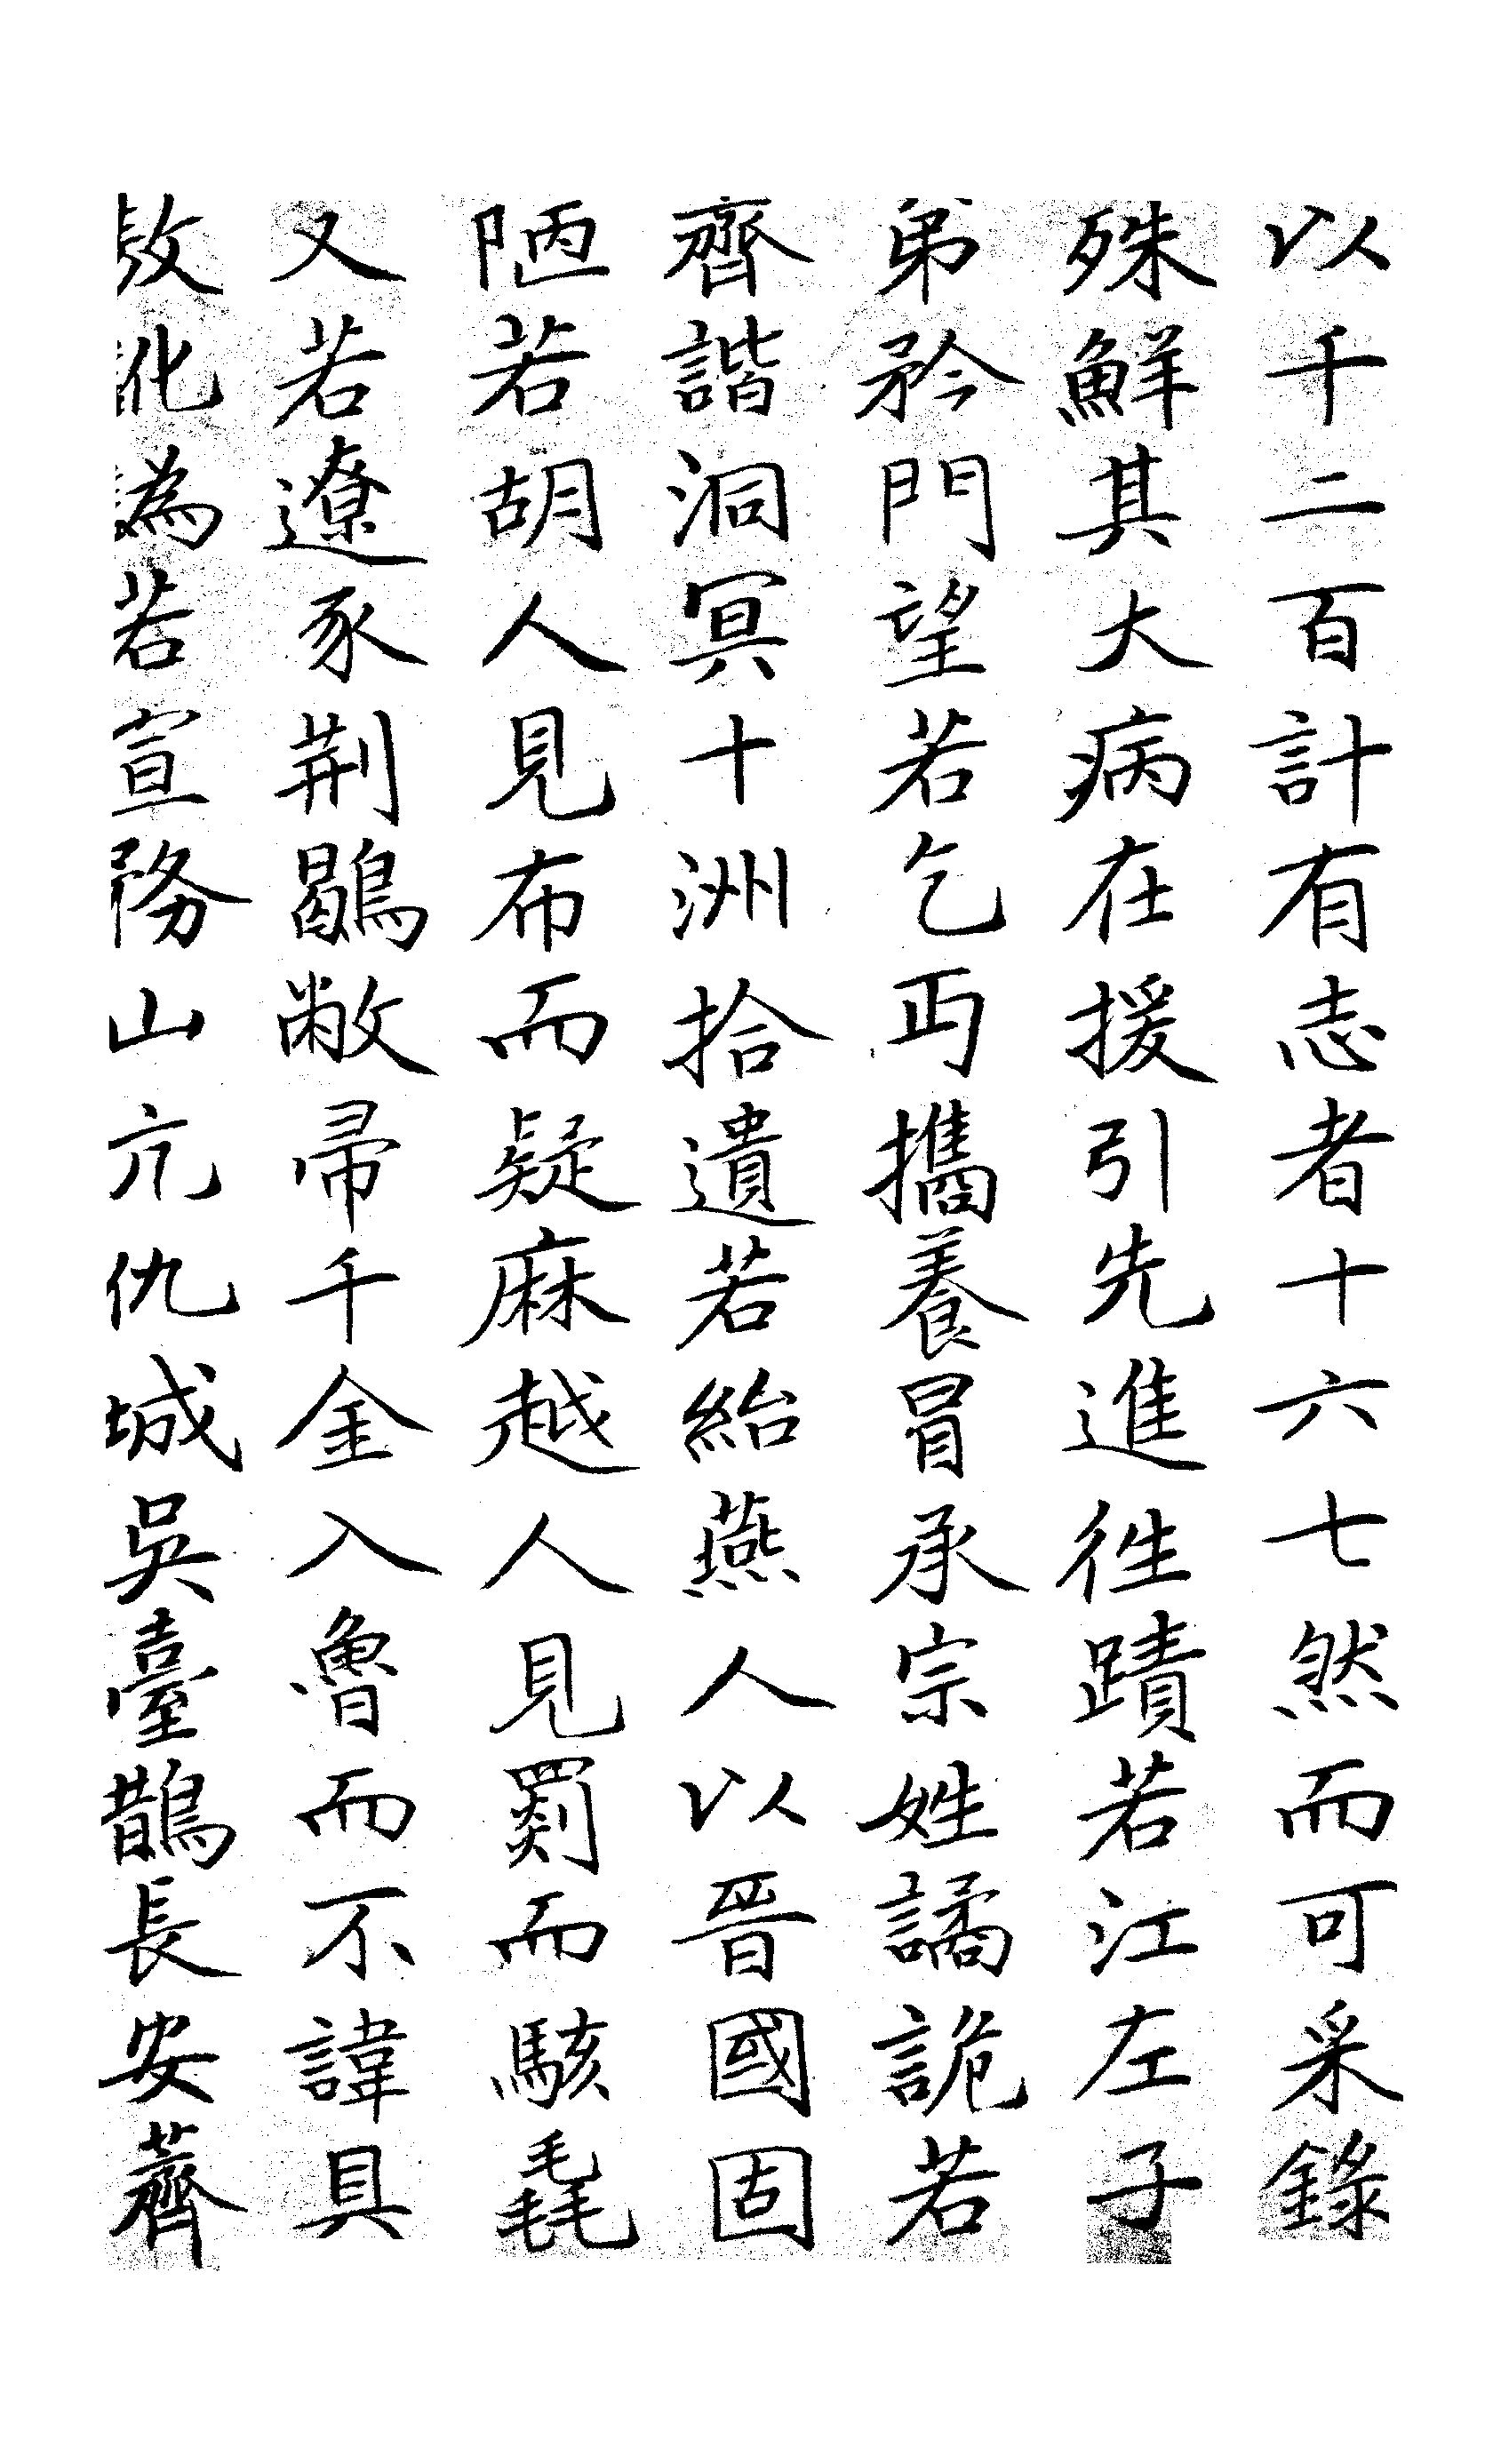 以千二百計有志者十六七然而可采錄
殊鮮其大病在援引先進徃蹟若江左子
弟矜門望若乞丐攜養冒承宗姓譎詭若
齊諧洞冥十洲拾遺若紿燕人以晉國固
陋若胡人見布而疑麻越人見罽而駭毳
又若遼豕荆鶡敝帚千金入魯而不諱具
敖訛譌若宣務山亢仇城吳臺鵲長安薺